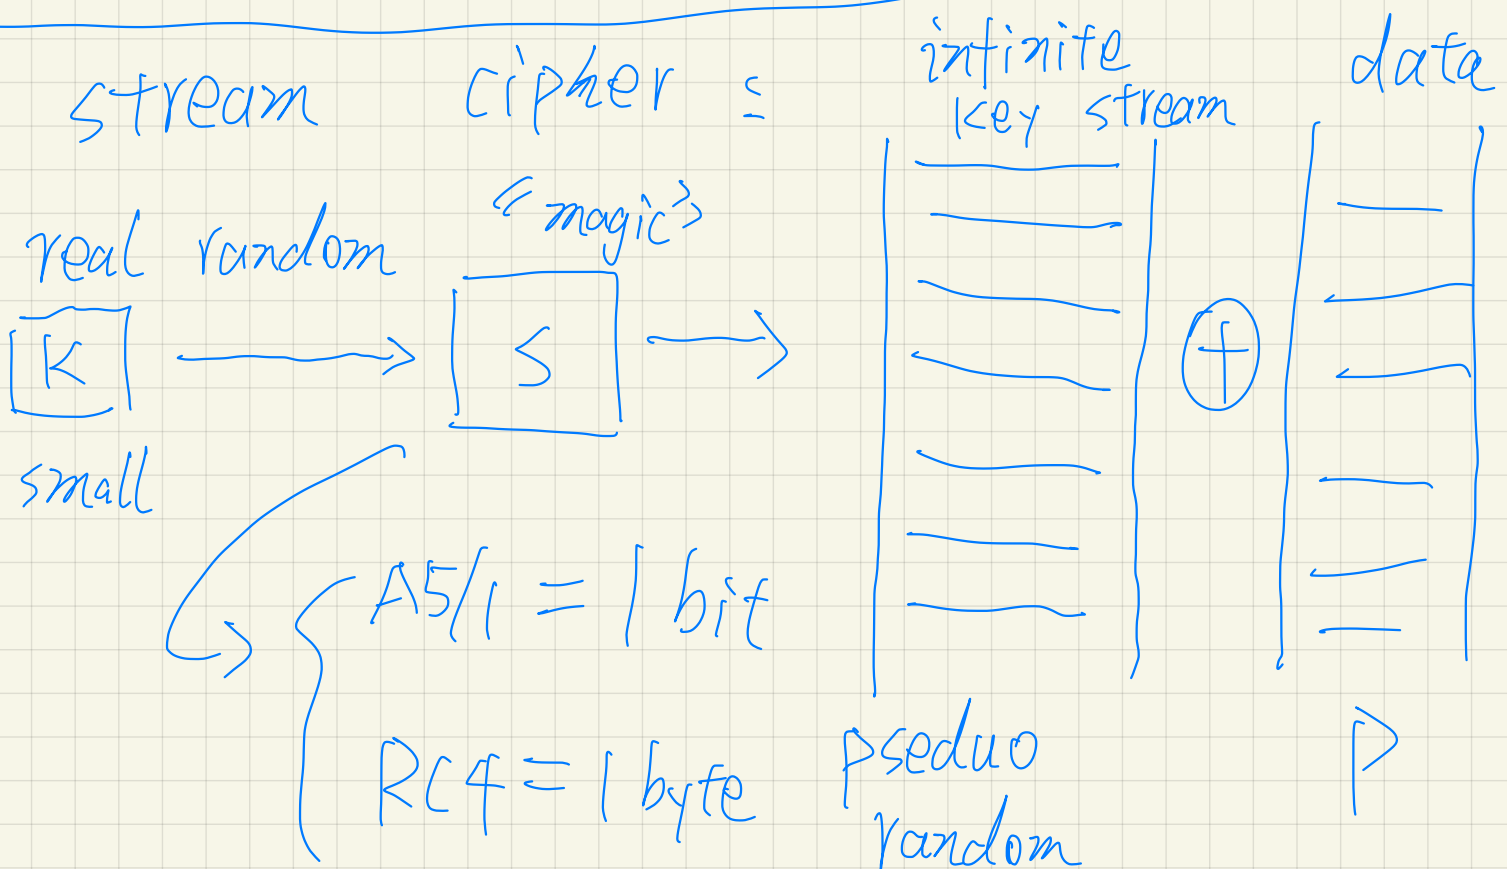 stream cipher :
infinite
key stream
data
real random
"magic"
K
S
+
small
A5/1 = 1 bit
RC4 = 1 byte
pseduo
random
P